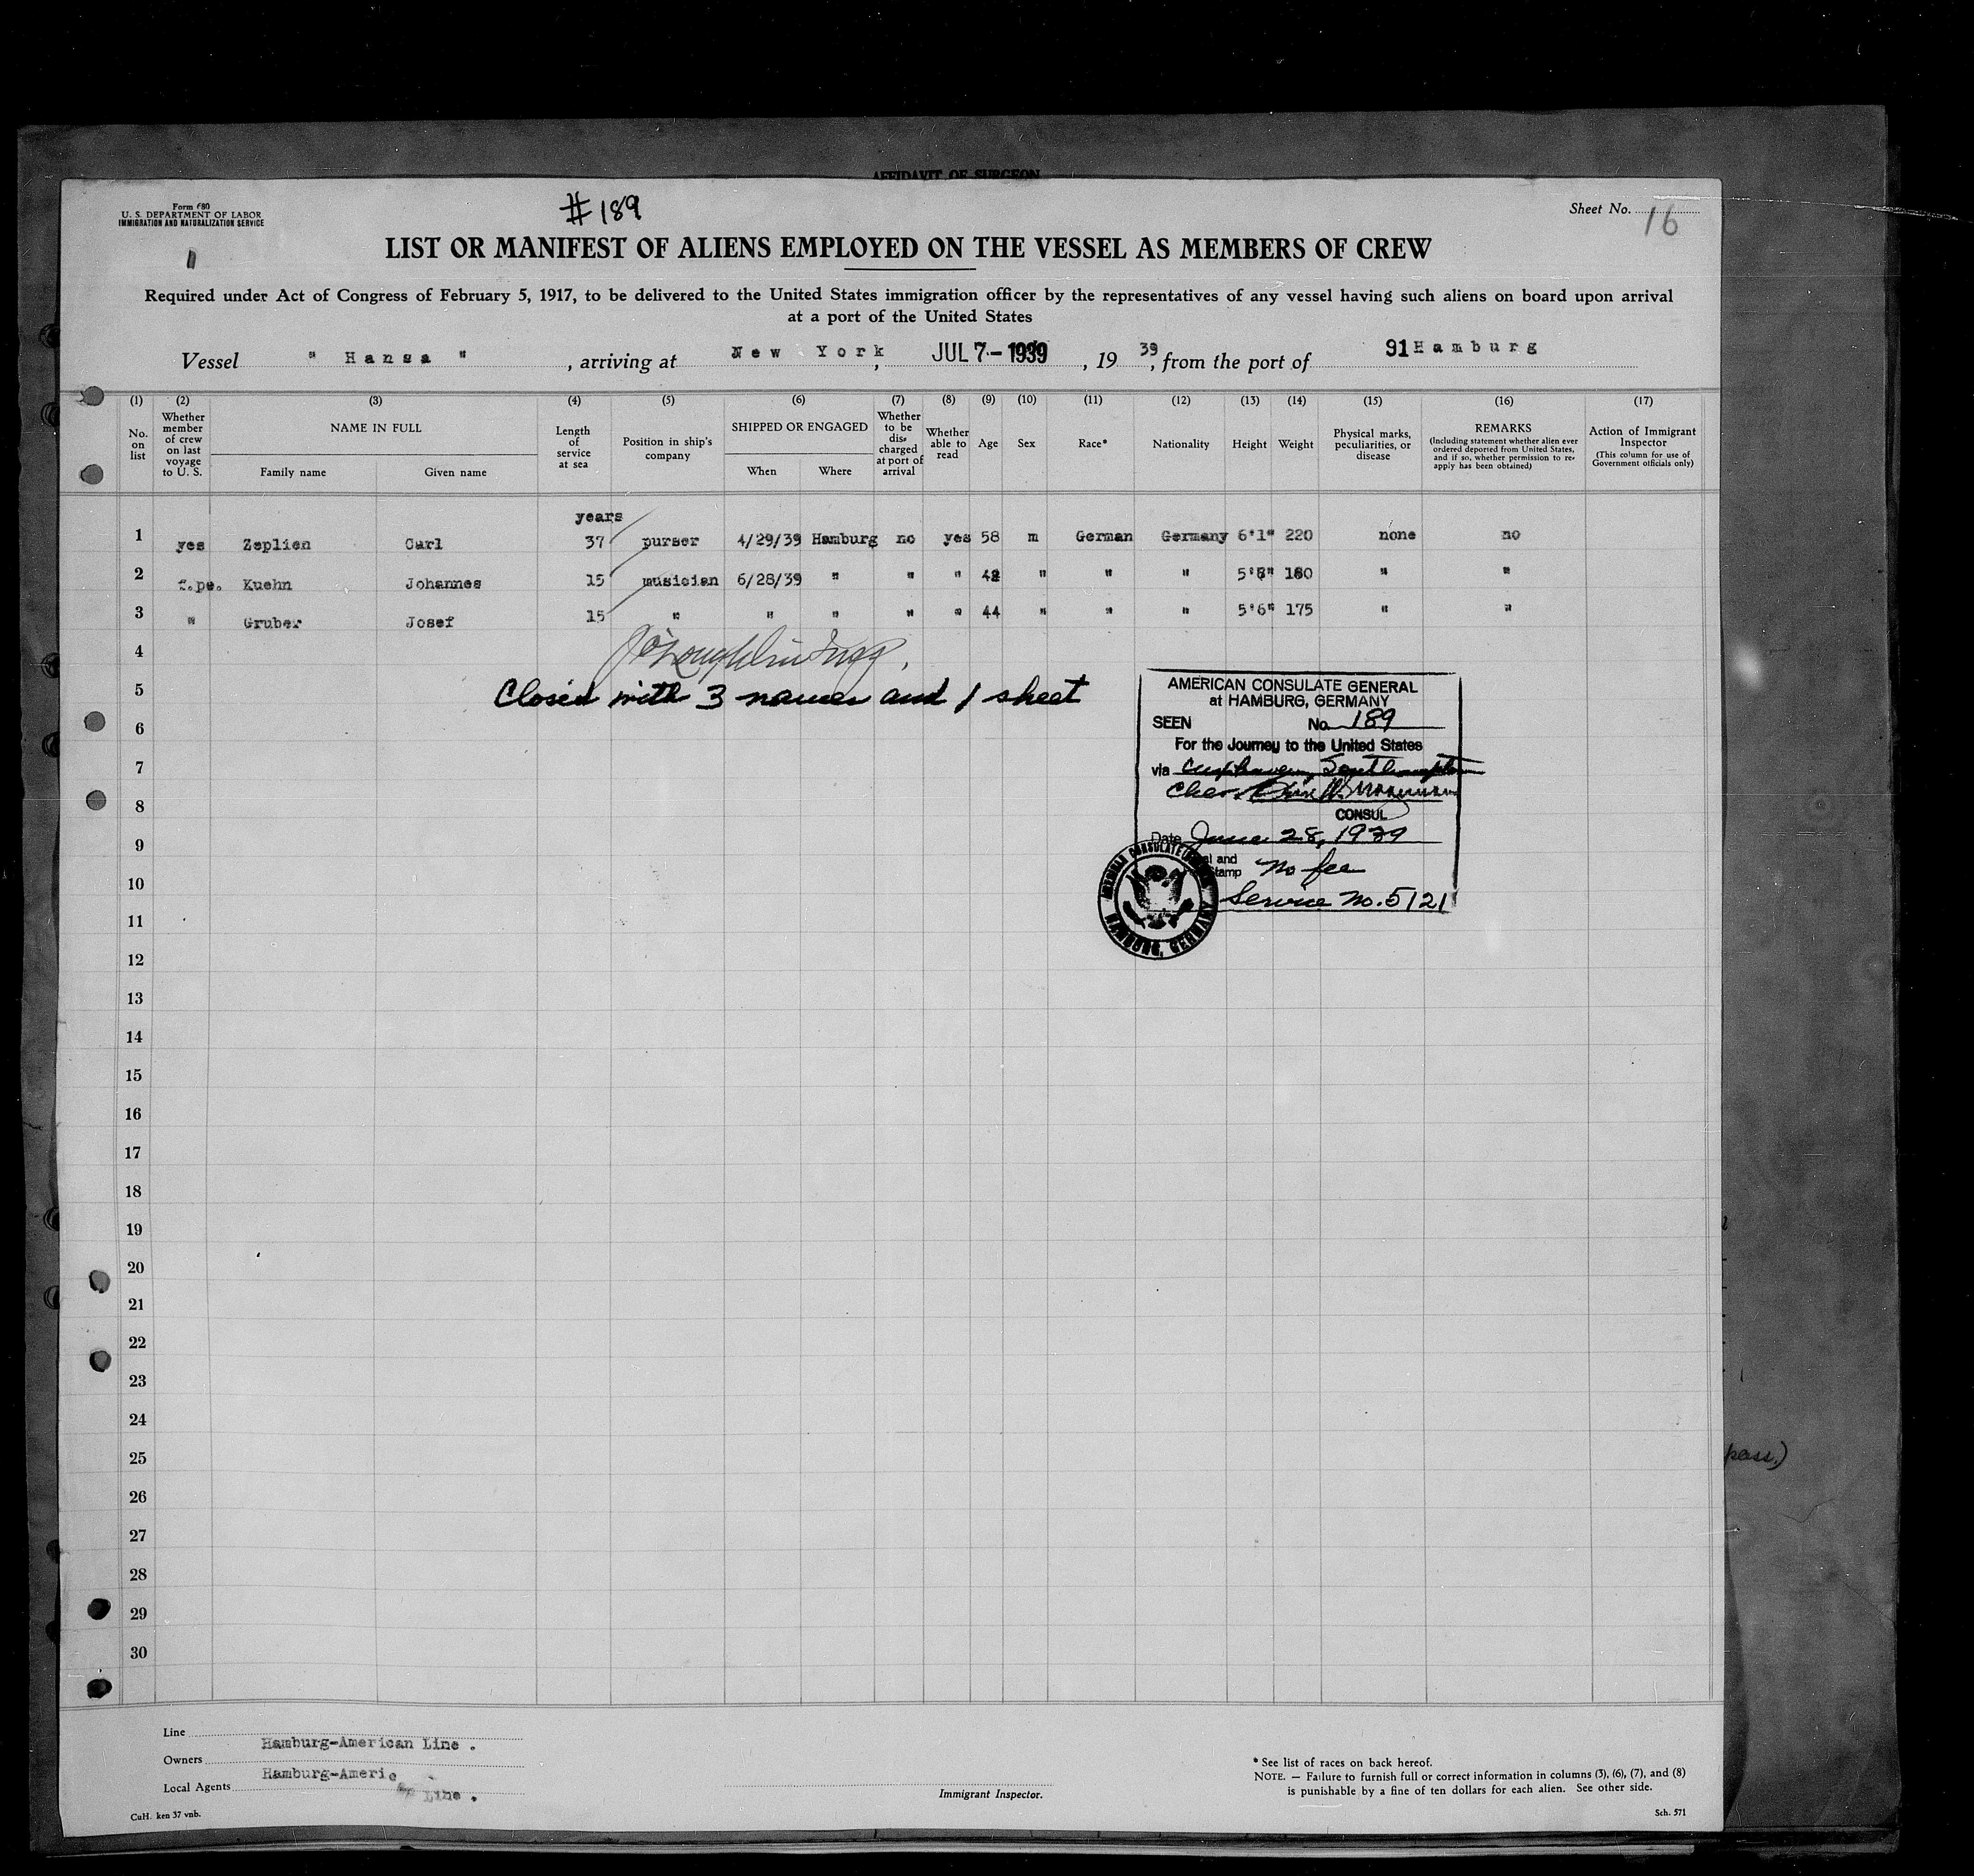 AFFIDAVIT OF SURGEON
Form 680
U. S. DEPARTMENT OF LABOR
IMMIGRATION AND NATURALIZATION SERVICE
#189
Sheet No. 16
LIST OR MANIFEST OF ALIENS EMPLOYED ON THE VESSEL AS MEMBERS OF CREW
Required under Act of Congress of February 5, 1917, to be delivered to the United States immigration officer by the representatives of any vessel having such aliens on board upon arrival
at a port of the United States
Vessel " Hansa " , arriving at New York , JUL 7 - 1939 , 19 39 , from the port of 91 Hamburg
(1) (2) (3) (4) (5) (6) (7) (8) (9) (10) (11) (12) (13) (14) (15) (16) (17)
No. on list
Whether member of crew on last voyage to U. S.
NAME IN FULL
Family name Given name
Length of service at sea
Position in ship's company
SHIPPED OR ENGAGED
When Where
Whether to be discharged at port of arrival
Whether able to read
Age
Sex
Race*
Nationality
Height
Weight
Physical marks, peculiarities, or disease
REMARKS
(Including statement whether alien ever ordered deported from United States, and if so, whether permission to reapply has been obtained)
Action of Immigrant Inspector
(This column for use of Government officials only)
years
1 yes Zeplien Carl 37 purser 4/29/39 Hamburg no yes 58 m German Germany 6'1" 220 none no
2 f.pe. Kuehn Johannes 15 musician 6/28/39 " " " 42 " " " 5'8" 160 " "
3 " Gruber Josef 15 " " " " " 44 " " " 5'6" 175 " "
4
5 Closed with 3 names and 1 sheet
6
7
8
9
10
11
12
13
14
15
16
17
18
19
20
21
22
23
24
25
26
27
28
29
30
AMERICAN CONSULATE GENERAL
at HAMBURG, GERMANY
SEEN No. 189
For the Journey to the United States
via Cuxhaven, Southampton
Cher
CONSUL
Date June 28, 1939
no fee
Service No. 5121
HAMBURG, GERMANY
pass.)
Line Hamburg-American Line .
Owners Hamburg-Americ
Local Agents Line .
CuH. ken 37 vnb.
Immigrant Inspector.
* See list of races on back hereof.
NOTE. — Failure to furnish full or correct information in columns (3), (6), (7), and (8)
is punishable by a fine of ten dollars for each alien. See other side.
Sch. 571